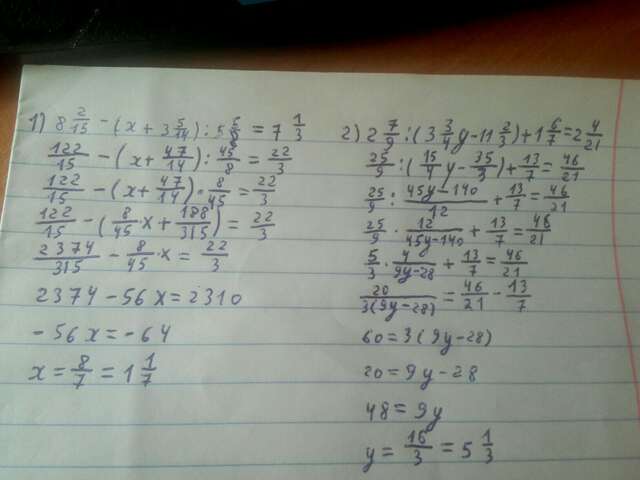 1) 8 2/15 - (x + 3 5/14) : 5 5/8 = 7 1/3
122/15 - (x + 47/14) : 45/8 = 22/3
122/15 - (x + 47/14) · 8/45 = 22/3
122/15 - (8/45 · x + 188/315) = 22/3
2374/315 - 8/45 · x = 22/3
2374 - 56x = 2310
- 56x = - 64
x = 8/7 = 1 1/7
2) 2 7/9 : (3 3/4 y - 11 2/3) + 1 6/7 = 2 4/21
25/9 : (15/4 y - 35/3) + 13/7 = 46/21
25/9 : 45y-140/12 + 13/7 = 46/21
25/9 · 12/45y-140 + 13/7 = 46/21
5/3 · 4/9y-28 + 13/7 = 46/21
20/3(9y-28) = 46/21 - 13/7
60 = 3(9y-28)
20 = 9y - 28
48 = 9y
y = 16/3 = 5 1/3